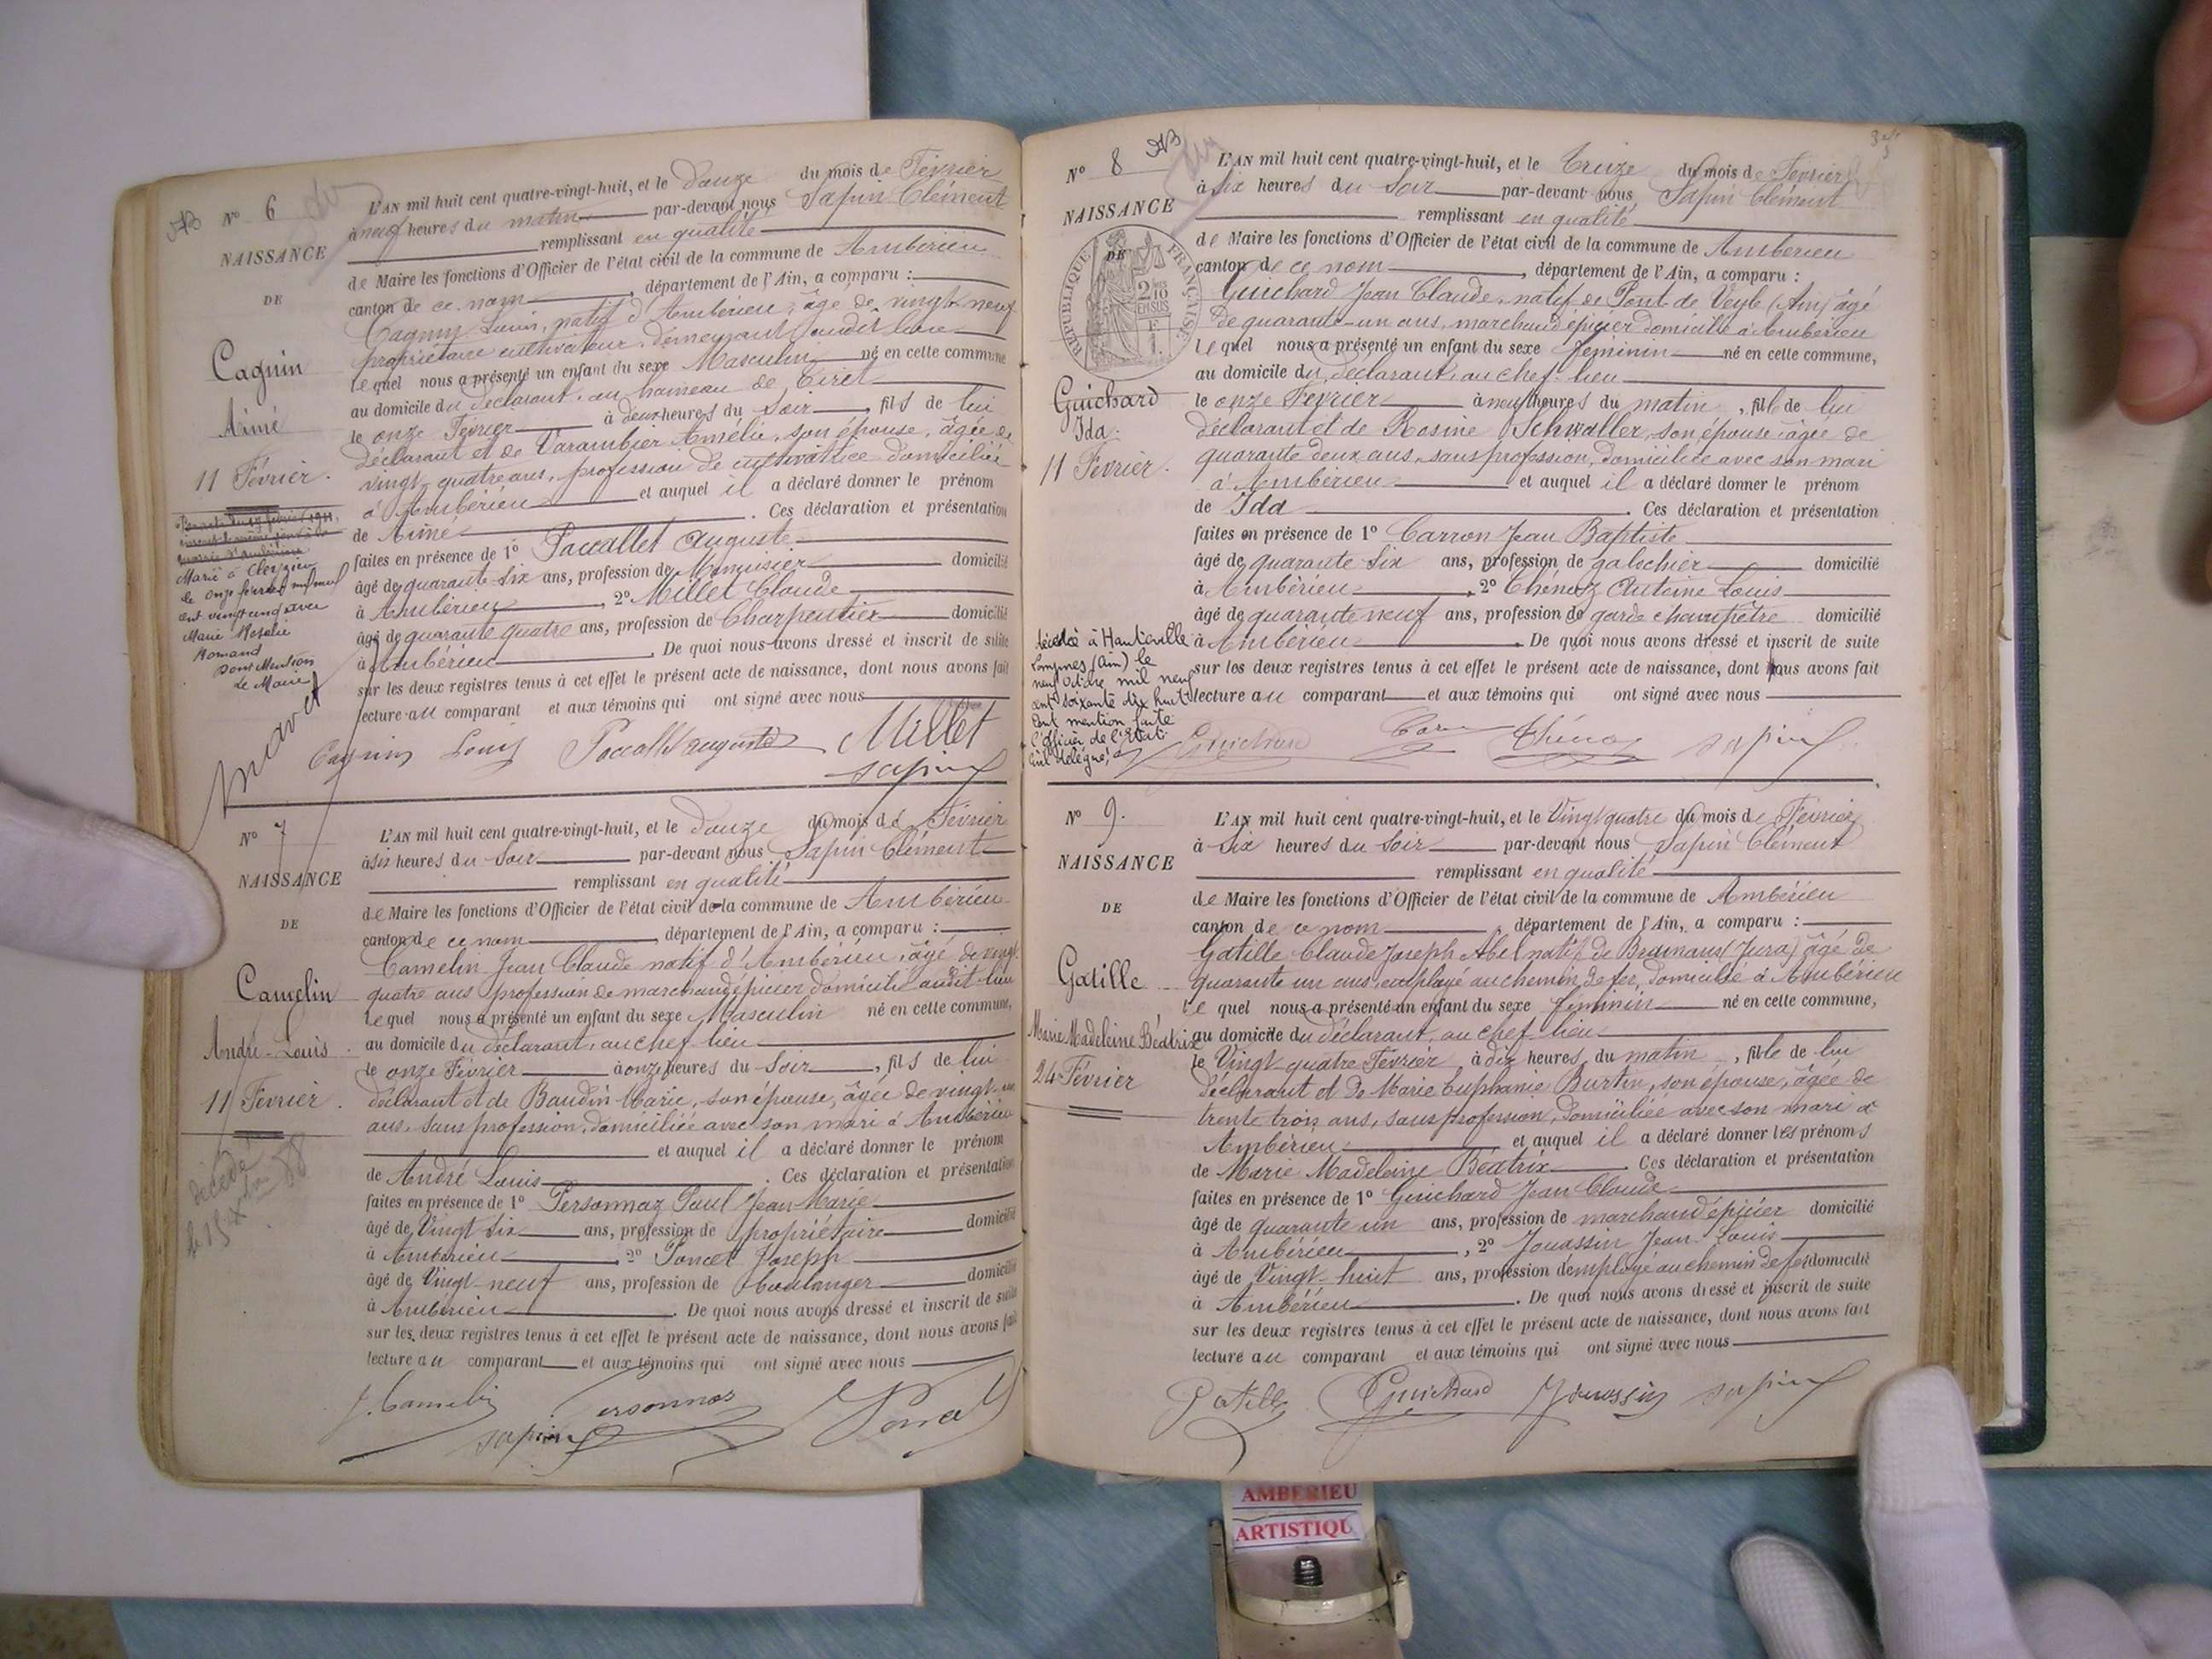 N° 6
NAISSANCE
DE
Cagnin
Aimé
11 Février.
Marié à
le onze février mil neuf
cent vingt cinq avec
Marie Rosalie
Romand
Dont Mention
Le Maire
L'AN mil huit cent quatre-vingt-huit, et le douze du mois de Février
à neuf heures du matin par-devant nous Sapin Clément
remplissant en qualité
de Maire les fonctions d'Officier de l'état civil de la commune de Ambérieu
canton de ce nom, département de l'Ain, a comparu :
Cagnin Louis, natif d'Ambérieu, âgé de vingt neuf
propriétaire cultivateur, demeurant audit lieu
lequel nous a présenté un enfant du sexe Masculin né en cette commune
au domicile du déclarant, au hameau de Tiret
le onze Février à deux heures du Soir, fils de lui
déclarant et de Varambier Amélie, son épouse, âgée de
vingt-quatre ans, profession de cultivatrice domiciliée
à Ambérieu et auquel il a déclaré donner le prénom
de Aimé. Ces déclaration et présentation
faites en présence de 1° Paccallet Auguste
âgé de quarante-six ans, profession de Menuisier domicilié
à Ambérieu, 2° Millet Claude
âgé de quarante quatre ans, profession de Charpentier domicilié
à Ambérieu. De quoi nous avons dressé et inscrit de suite
sur les deux registres tenus à cet effet le présent acte de naissance, dont nous avons fait
lecture au comparant et aux témoins qui ont signé avec nous
Cagnin Louis Paccallet auguste Millet
sapin
N° 7
NAISSANCE
DE
Camelin
André-Louis
11 Février.
décédé
le 15 Xbre 88
L'AN mil huit cent quatre-vingt-huit, et le douze du mois de Février
à six heures du Soir par-devant nous Sapin Clément
remplissant en qualité
de Maire les fonctions d'Officier de l'état civil de la commune de Ambérieu
canton de ce nom, département de l'Ain, a comparu :
Camelin Jean Claude natif d'Ambérieu, âgé de vingt
quatre ans profession de marchand épicier domicilié audit lieu
lequel nous a présenté un enfant du sexe Masculin né en cette commune,
au domicile du déclarant, au chef-lieu
le onze Février à onze heures du Soir, fils de lui
déclarant et de Baudin Marie, son épouse, âgée de vingt-un
ans, sans profession, domiciliée avec son mari à Ambérieu
et auquel il a déclaré donner le prénom
de André Louis. Ces déclaration et présentation
faites en présence de 1° Personnaz Paul Jean-Marie
âgé de Vingt six ans, profession de propriétaire domicilié
à Ambérieu, 2° Poncet Joseph
âgé de Vingt-neuf ans, profession de boulanger domicilié
à Ambérieu. De quoi nous avons dressé et inscrit de suite
sur les deux registres tenus à cet effet le présent acte de naissance, dont nous avons fait
lecture au comparant et aux témoins qui ont signé avec nous
J. Camelin Personnaz Poncet
sapin
N° 8
NAISSANCE
DE
RÉPUBLIQUE FRANÇAISE
Guichard
Ida.
11 Février.
décédée à Hauteville
Lompnes (Ain) le
neuf Octobre mil neuf
cent soixante dix huit
Dont mention faite
l'Officier de l'Etat
Civil délégué,
L'AN mil huit cent quatre-vingt-huit, et le treize du mois de Février
à six heures du Soir par-devant nous, Sapin Clément
remplissant en qualité
de Maire les fonctions d'Officier de l'état civil de la commune de Ambérieu
canton de ce nom, département de l'Ain, a comparu :
Guichard Jean Claude, natif de Pont de Veyle (Ain) âgé
de quarante-un ans, marchand épicier domicilié à Ambérieu
lequel nous a présenté un enfant du sexe féminin né en cette commune,
au domicile du déclarant, au chef-lieu
le onze Février à neuf heures du matin, fille de lui
déclarant et de Rosine Schwaller, son épouse âgée de
quarante deux ans, sans profession, domiciliée avec son mari
à Ambérieu et auquel il a déclaré donner le prénom
de Ida. Ces déclaration et présentation
faites en présence de 1° Carron Jean Baptiste
âgé de quarante six ans, profession de galochier domicilié
à Ambérieu, 2° Chénaz Antoine Louis
âgé de quarante neuf ans, profession de garde champêtre domicilié
à Ambérieu. De quoi nous avons dressé et inscrit de suite
sur les deux registres tenus à cet effet le présent acte de naissance, dont nous avons fait
lecture au comparant et aux témoins qui ont signé avec nous
Guichard sapin
N° 9.
NAISSANCE
DE
Gatille
Marie Madeleine Béatrix
24 Février
L'AN mil huit cent quatre-vingt-huit, et le Vingt quatre du mois de Février
à six heures du Soir par-devant nous Sapin Clément
remplissant en qualité
de Maire les fonctions d'Officier de l'état civil de la commune de Ambérieu
canton de ce nom, département de l'Ain, a comparu :
Gatille Claude Joseph Abel natif de (Jura) âgé de
quarante un ans, employé au chemin de fer, domicilié à Ambérieu
lequel nous a présenté un enfant du sexe féminin né en cette commune,
au domicile du déclarant, au chef-lieu
le Vingt quatre Février à dix heures du matin, fille de lui
déclarant et de Marie Euphanie Burtin, son épouse, âgée de
trente trois ans, sans profession, domiciliée avec son mari à
Ambérieu et auquel il a déclaré donner les prénoms
de Marie Madeleine Béatrix. Ces déclaration et présentation
faites en présence de 1° Guichard Jean Claude
âgé de quarante un ans, profession de marchand épicier domicilié
à Ambérieu, 2° Jouassin Jean Louis
âgé de Vingt-huit ans, profession d'employé au chemin de fer domicilié
à Ambérieu. De quoi nous avons dressé et inscrit de suite
sur les deux registres tenus à cet effet le présent acte de naissance, dont nous avons fait
lecture au comparant et aux témoins qui ont signé avec nous
Gatille Guichard Jouassin sapin
AMBERIEU
ARTISTIQU